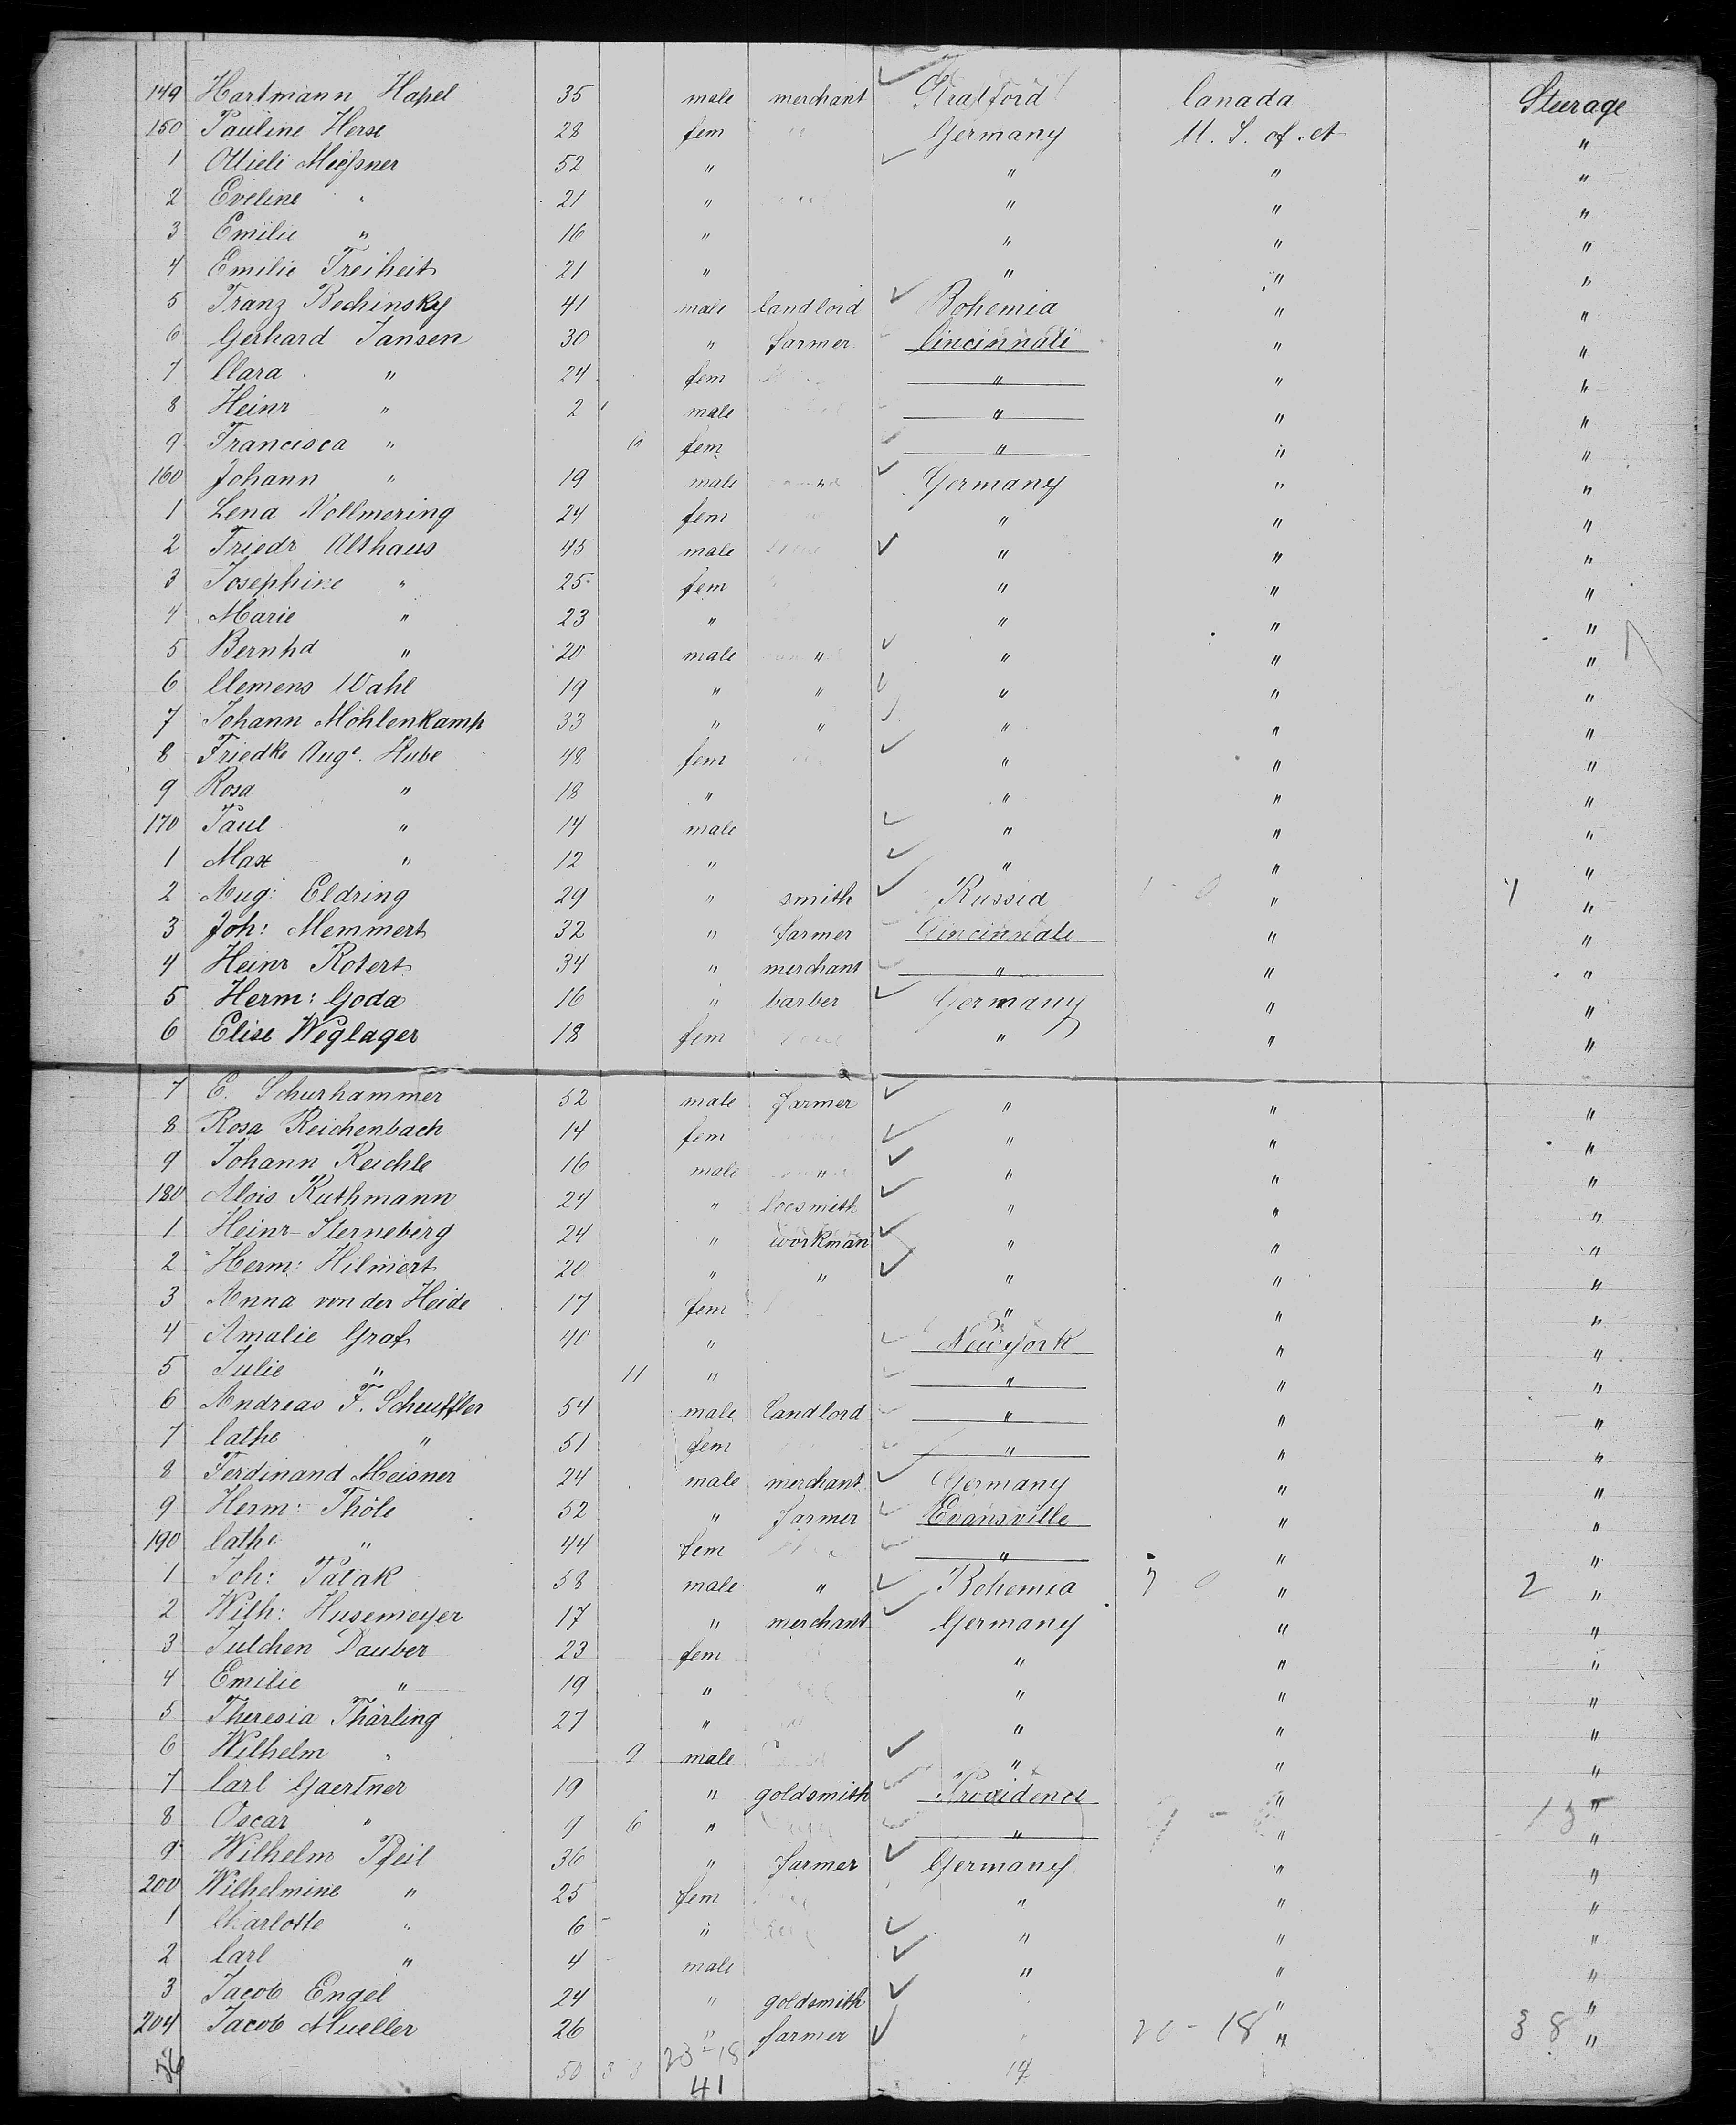 149 Hartmann Hapel 35 male merchant Stratford Canada Steerage
150 Pauline Herse 28 fem Germany U. S. of A "
1 Ottieli Meißner 52 " " " "
2 Eveline " 21 " " " "
3 Emilie " 16 " " " "
4 Emilie Freiheit 21 " " " "
5 Franz Bechinsky 41 male landlord Bohemia " "
6 Gerhard Jansen 30 " farmer Cincinnati " "
7 Clara " 24 fem " " "
8 Heinr " 2 male " " "
9 Francisca " fem " " "
160 Johann " 19 male " Germany " "
1 Lena Vollmering 24 fem " " "
2 Friedr Althaus 45 male " " "
3 Josephine " 25 fem " " "
4 Marie " 23 " " " "
5 Bernhd " 20 male " " " "
6 Clemens Wahl 19 " " " " "
7 Johann Möhlenkamp 33 " " " " "
8 Friedke Auge. Hube 48 fem " " "
9 Rosa " 18 " " " "
170 Paul " 14 male " " "
1 Max " 12 " " " "
2 Aug: Eldring 29 " smith Russia " "
3 Joh: Memmert 32 " farmer Cincinnati " "
4 Heinr Rotert 34 " merchant " " "
5 Herm: Goda 16 " barber Germany " "
6 Elise Weglager 18 fem " " "
7 E. Schurhammer 52 male farmer " " "
8 Rosa Reichenbach 14 fem " " "
9 Johann Reichle 16 male " " " "
180 Alois Ruthmann 24 " locsmith " " "
1 Heinr Sterneberg 24 " workman " " "
2 Herm: Hilmert 20 " " " " "
3 Anna von der Heide 17 fem " " "
4 Amalie Graf 40 " Newyork " "
5 Julie " 11 " " " "
6 Andreas F. Scheuffler 54 male landlord " " "
7 Cathe " 51 fem " " "
8 Ferdinand Meisner 24 male merchant Germany " "
9 Herm: Thöle 52 " farmer Evansville " "
190 Cathe " 44 fem " " "
1 Joh: Palak 58 male " Bohemia " 2 "
2 Wilh: Husemeyer 17 " merchant Germany " "
3 Julchen Dauber 23 fem " " "
4 Emilie " 19 " " " "
5 Theresia Thärling 27 " " " "
6 Wilhelm " 9 male " " "
7 Carl Gaertner 19 " goldsmith Providence " "
8 Oscar " 9 6 " " " "
9 Wilhelm Pfeil 36 " farmer Germany " "
200 Wilhelmine " 25 fem " " "
1 Charlotte " 6 " " " "
2 Carl " 4 male " " "
3 Jacob Engel 24 " goldsmith " "
204 Jacob Mueller 26 " farmer 20 - 18 " 38 "
56 50 3 3 23-18 14
41